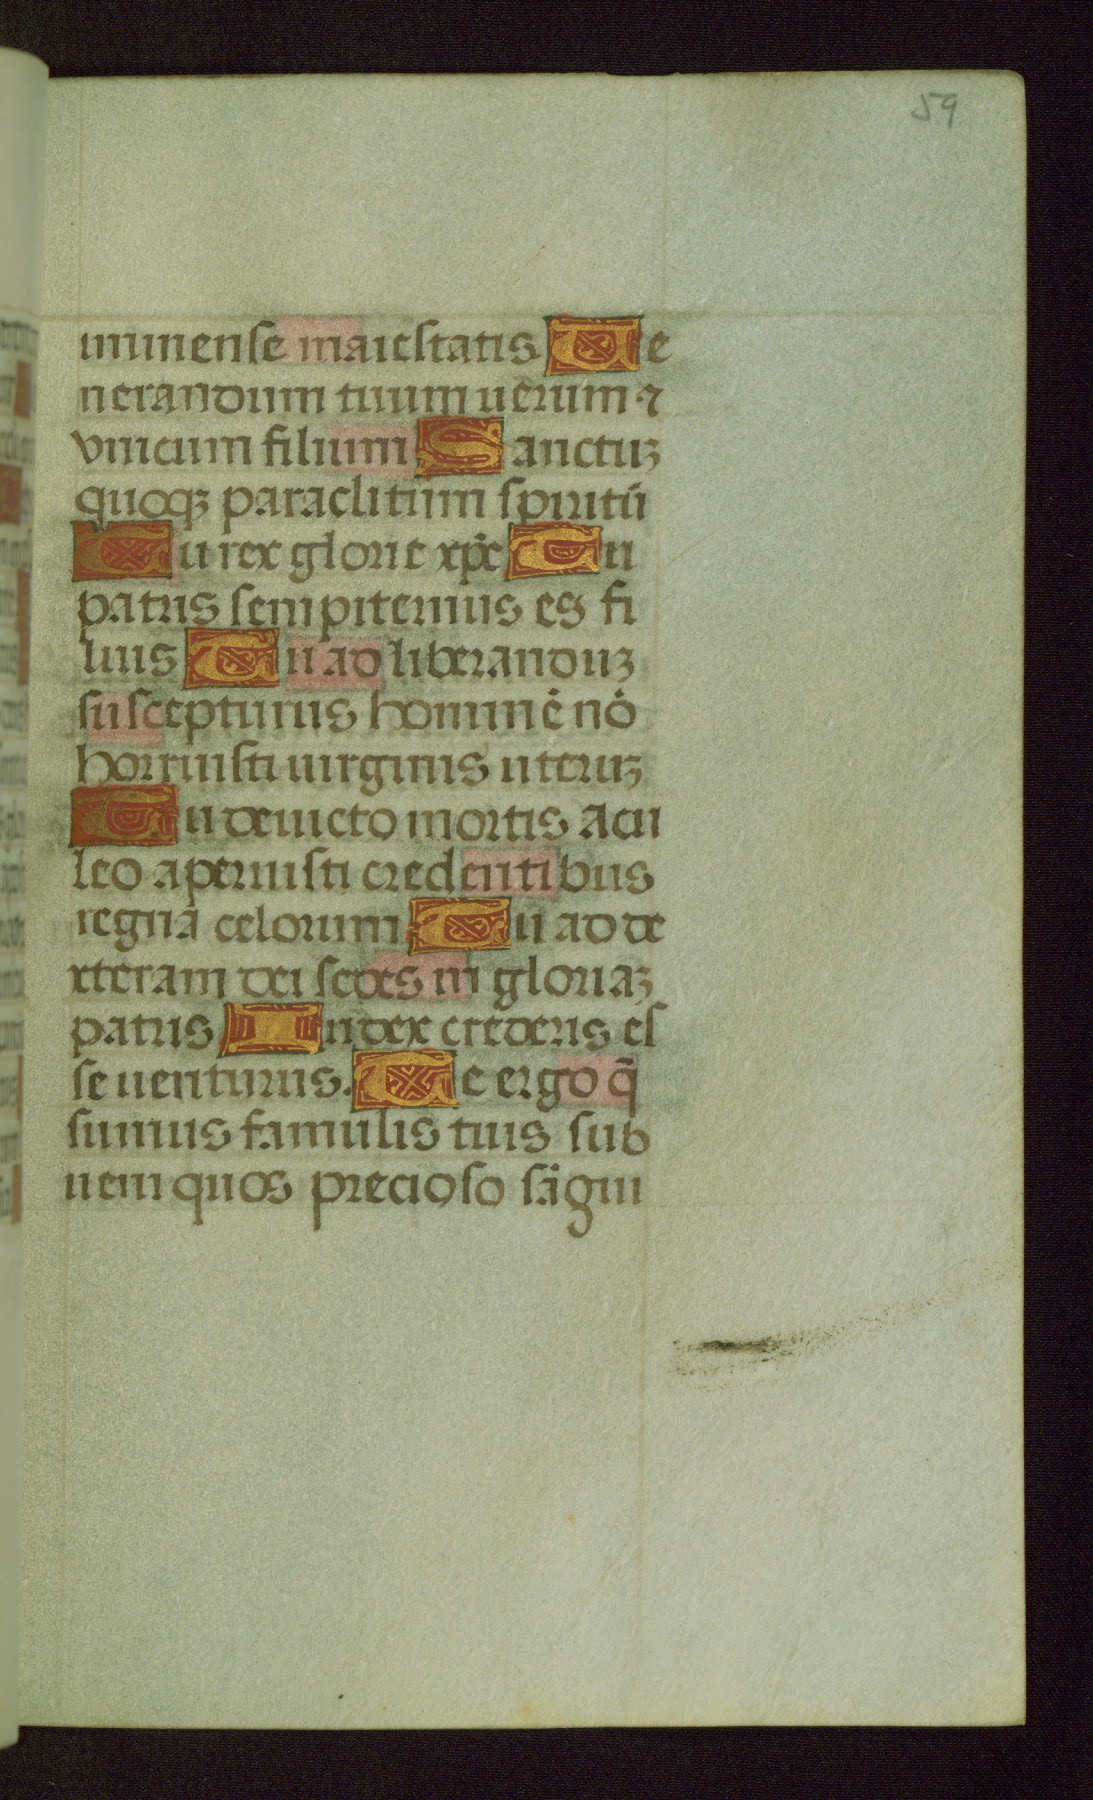 59
immense maiestatis Ue
nerandum tuum uerum ⁊
vnicum filium Sanctuꝫ
quoqꝫ paraclitum spiritū
Tu rex glorie xp̄e Tu
patris sempiternus es fi
lius Tu ad liberanduꝫ
suscepturus hominē nō
horruisti uirginis uteruꝫ
Tu deuicto mortis acu
leo aperuisti credentibus
regnā celorum Tu ad de
xteram dei sedes in gloriaꝫ
patris Iudex crederis es
se uenturus. Te ergo q̄
sumus famulis tuis sub
ueni quos precioso sāgui